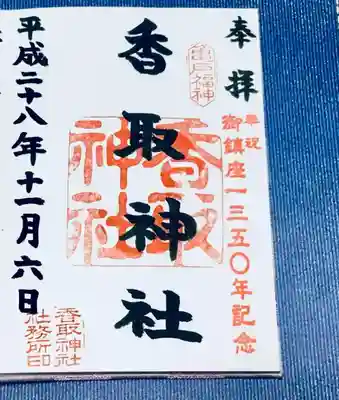 奉拝
亀戸福神
奉祝
御鎮座一三五〇年記念
香取神社
香取
神社
平成二十八年十一月六日
香取神社
社務所印